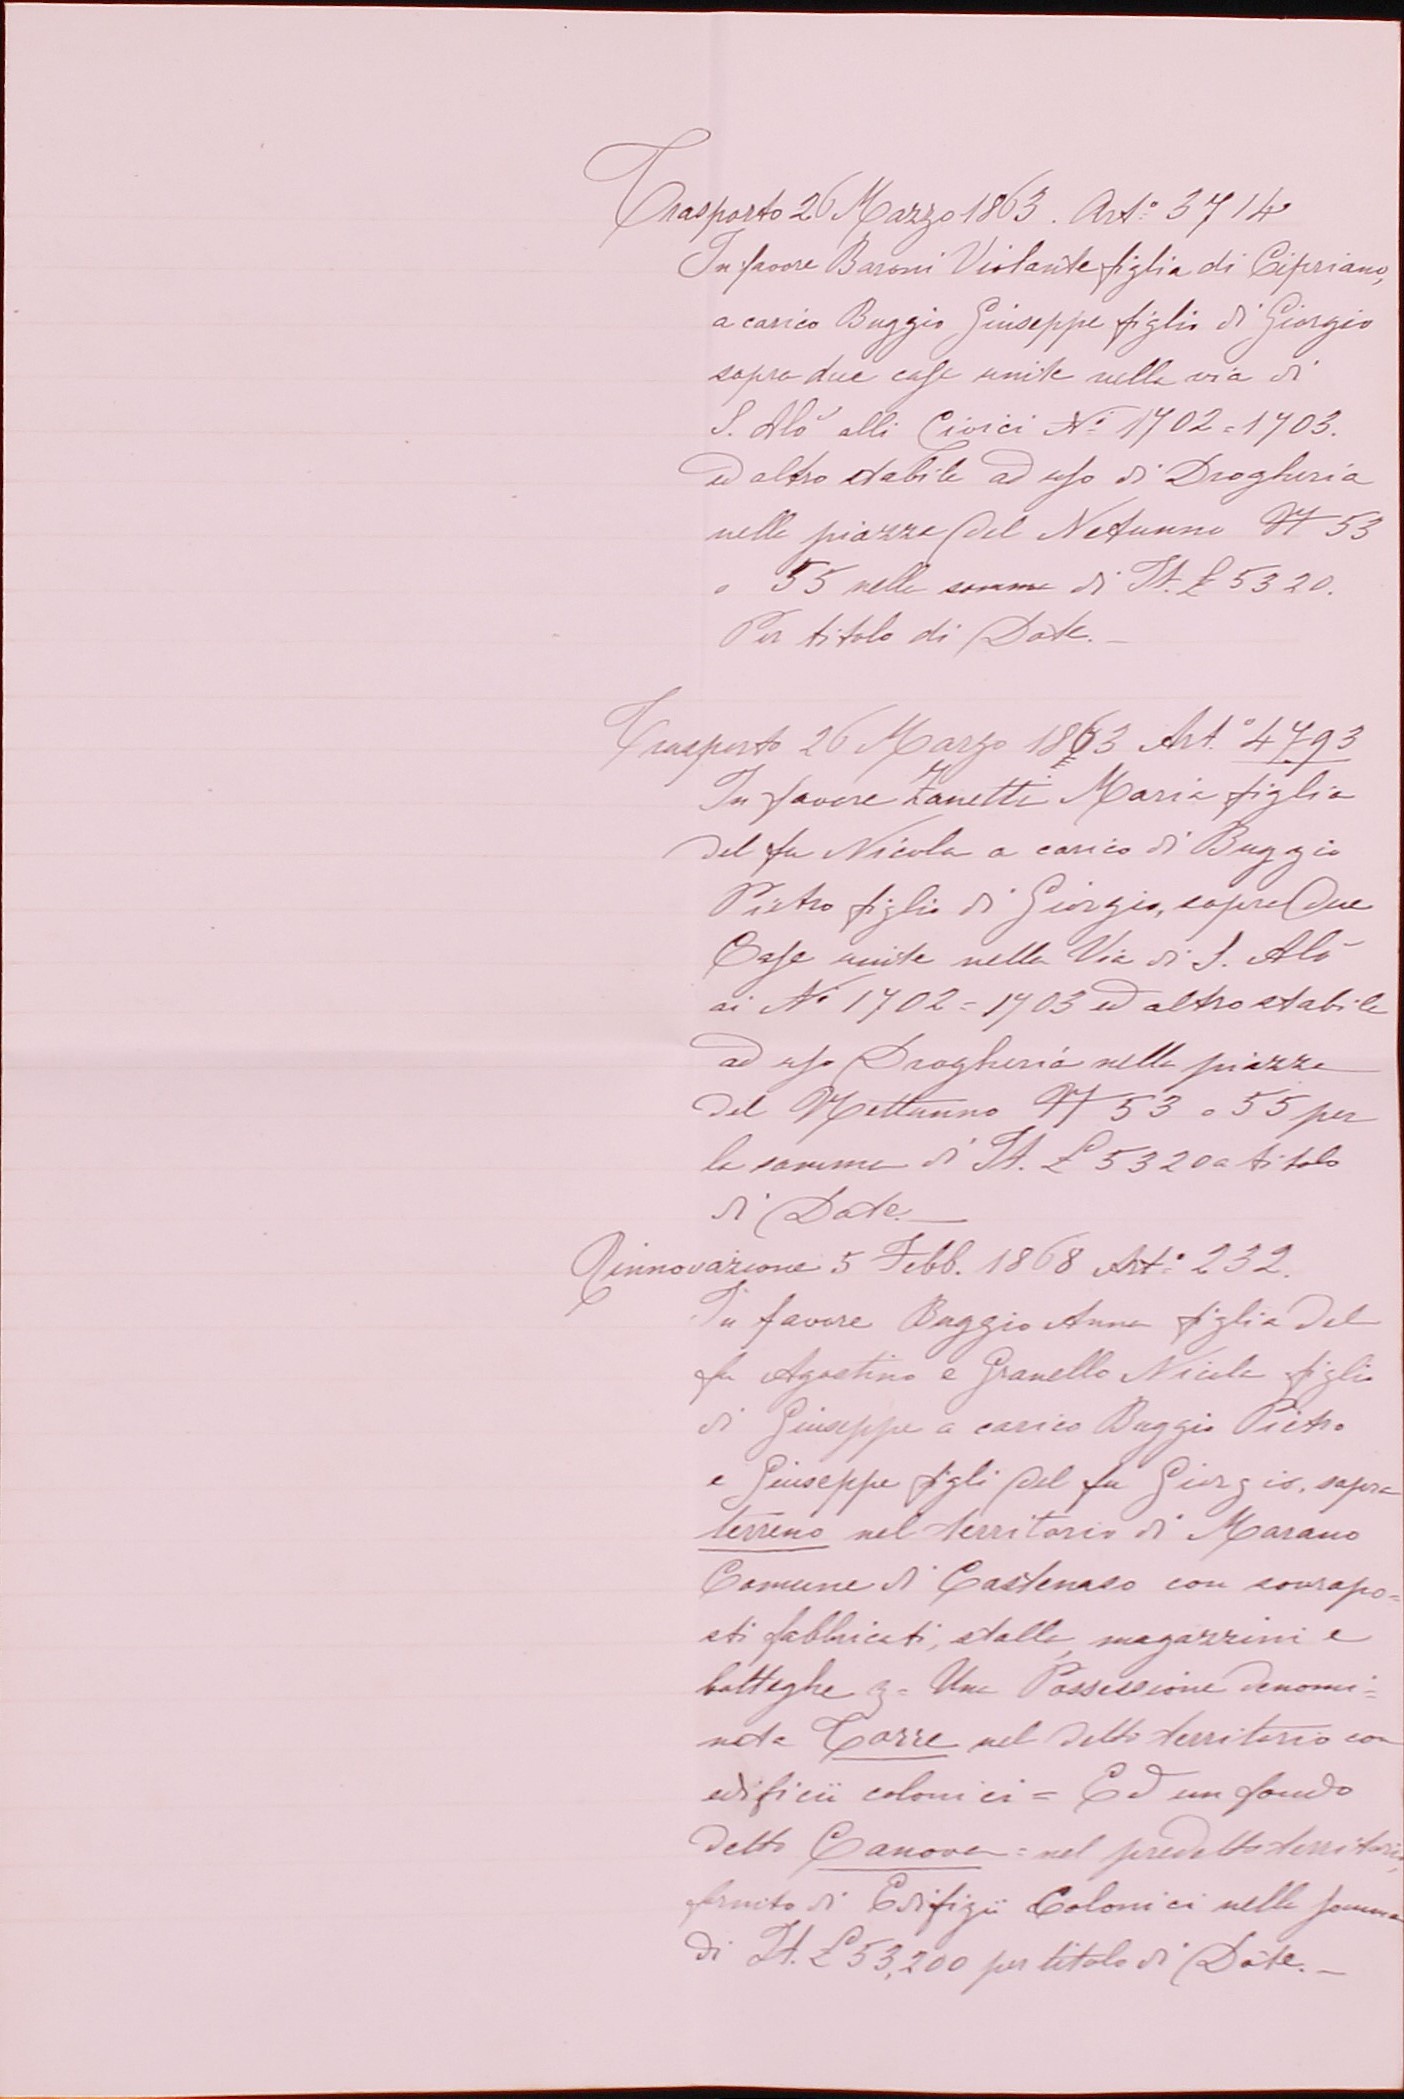 Trasporto 26 Marzo 1863. Art.º 3714
In favore Baroni Violante figlia di Cipriano,
a carico Buggio Giuseppe figlio di Giorgio
sopra due case unite nella via di
S. Alò alli Civici Nⁱ 1702=1703.
ed altro stabile ad uso di Drogheria
nella piazza del Netunno N 53
o 55 nella somma di It. £ 5320.
Per titolo di Dote.—
Trasporto 26 Marzo 1863 Art.º 4793
In favore Zanetti Maria figlia
del fu Nicola a carico di Buggio
Pietro figlio di Giorgio, sopra due
Case unite nella Via di S. Alò
ai Nⁱ 1702=1703 ed altro stabile
ad uso Drogheria nella piazza
del Nettunno N 53 o 55 per
la somma di It. £ 5320 a titolo
di Dote.—
Rinnovazione 5 Febb. 1868 Art.º 232.
In favore Buggio Anna figlia del
fu Agostino e Granello Nicola figlio
di Giuseppe a carico Buggio Pietro
e Giuseppe figli del fu Giorgio, sopra
terreno nel territorio di Marano
Comune di Castenaso con sovrapo=
sti fabbricati, stalla, magazzini e
botteghe 3= Una Possessione denomi=
nata Torre nel detto territorio con
edificii colonici = Ed un fondo
detto Canova = nel predetto territorio,
fornito di Edifizii Colonici nella somma
di It. £ 53,200 per titolo di Dote.—